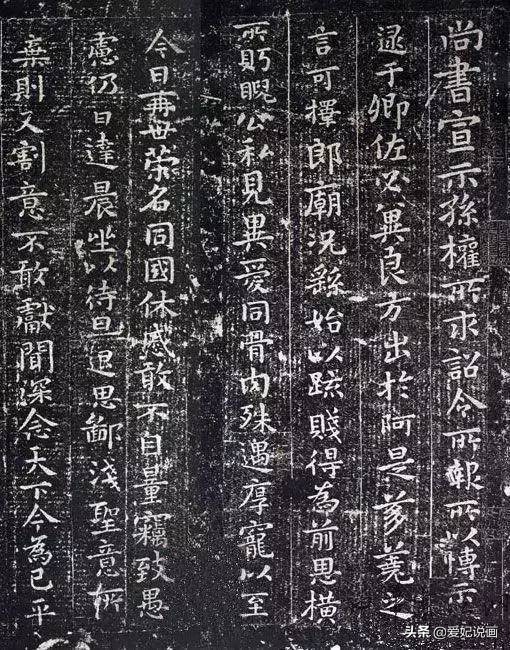 尚書宣示孫權所求詔令所報所以博示
逮于卿佐必冀良方出於阿是芻蕘之
言可擇郎廟況繇始以疏賤得為前恩橫
所眄睨公私見異愛同骨肉殊遇厚寵以至
今日再世榮名同國休慼敢不自量竊致愚
慮仍日達晨坐以待旦退思鄙淺聖意所
棄則又割意不敢獻聞深念天下今為已平
头条 @爱妃说画